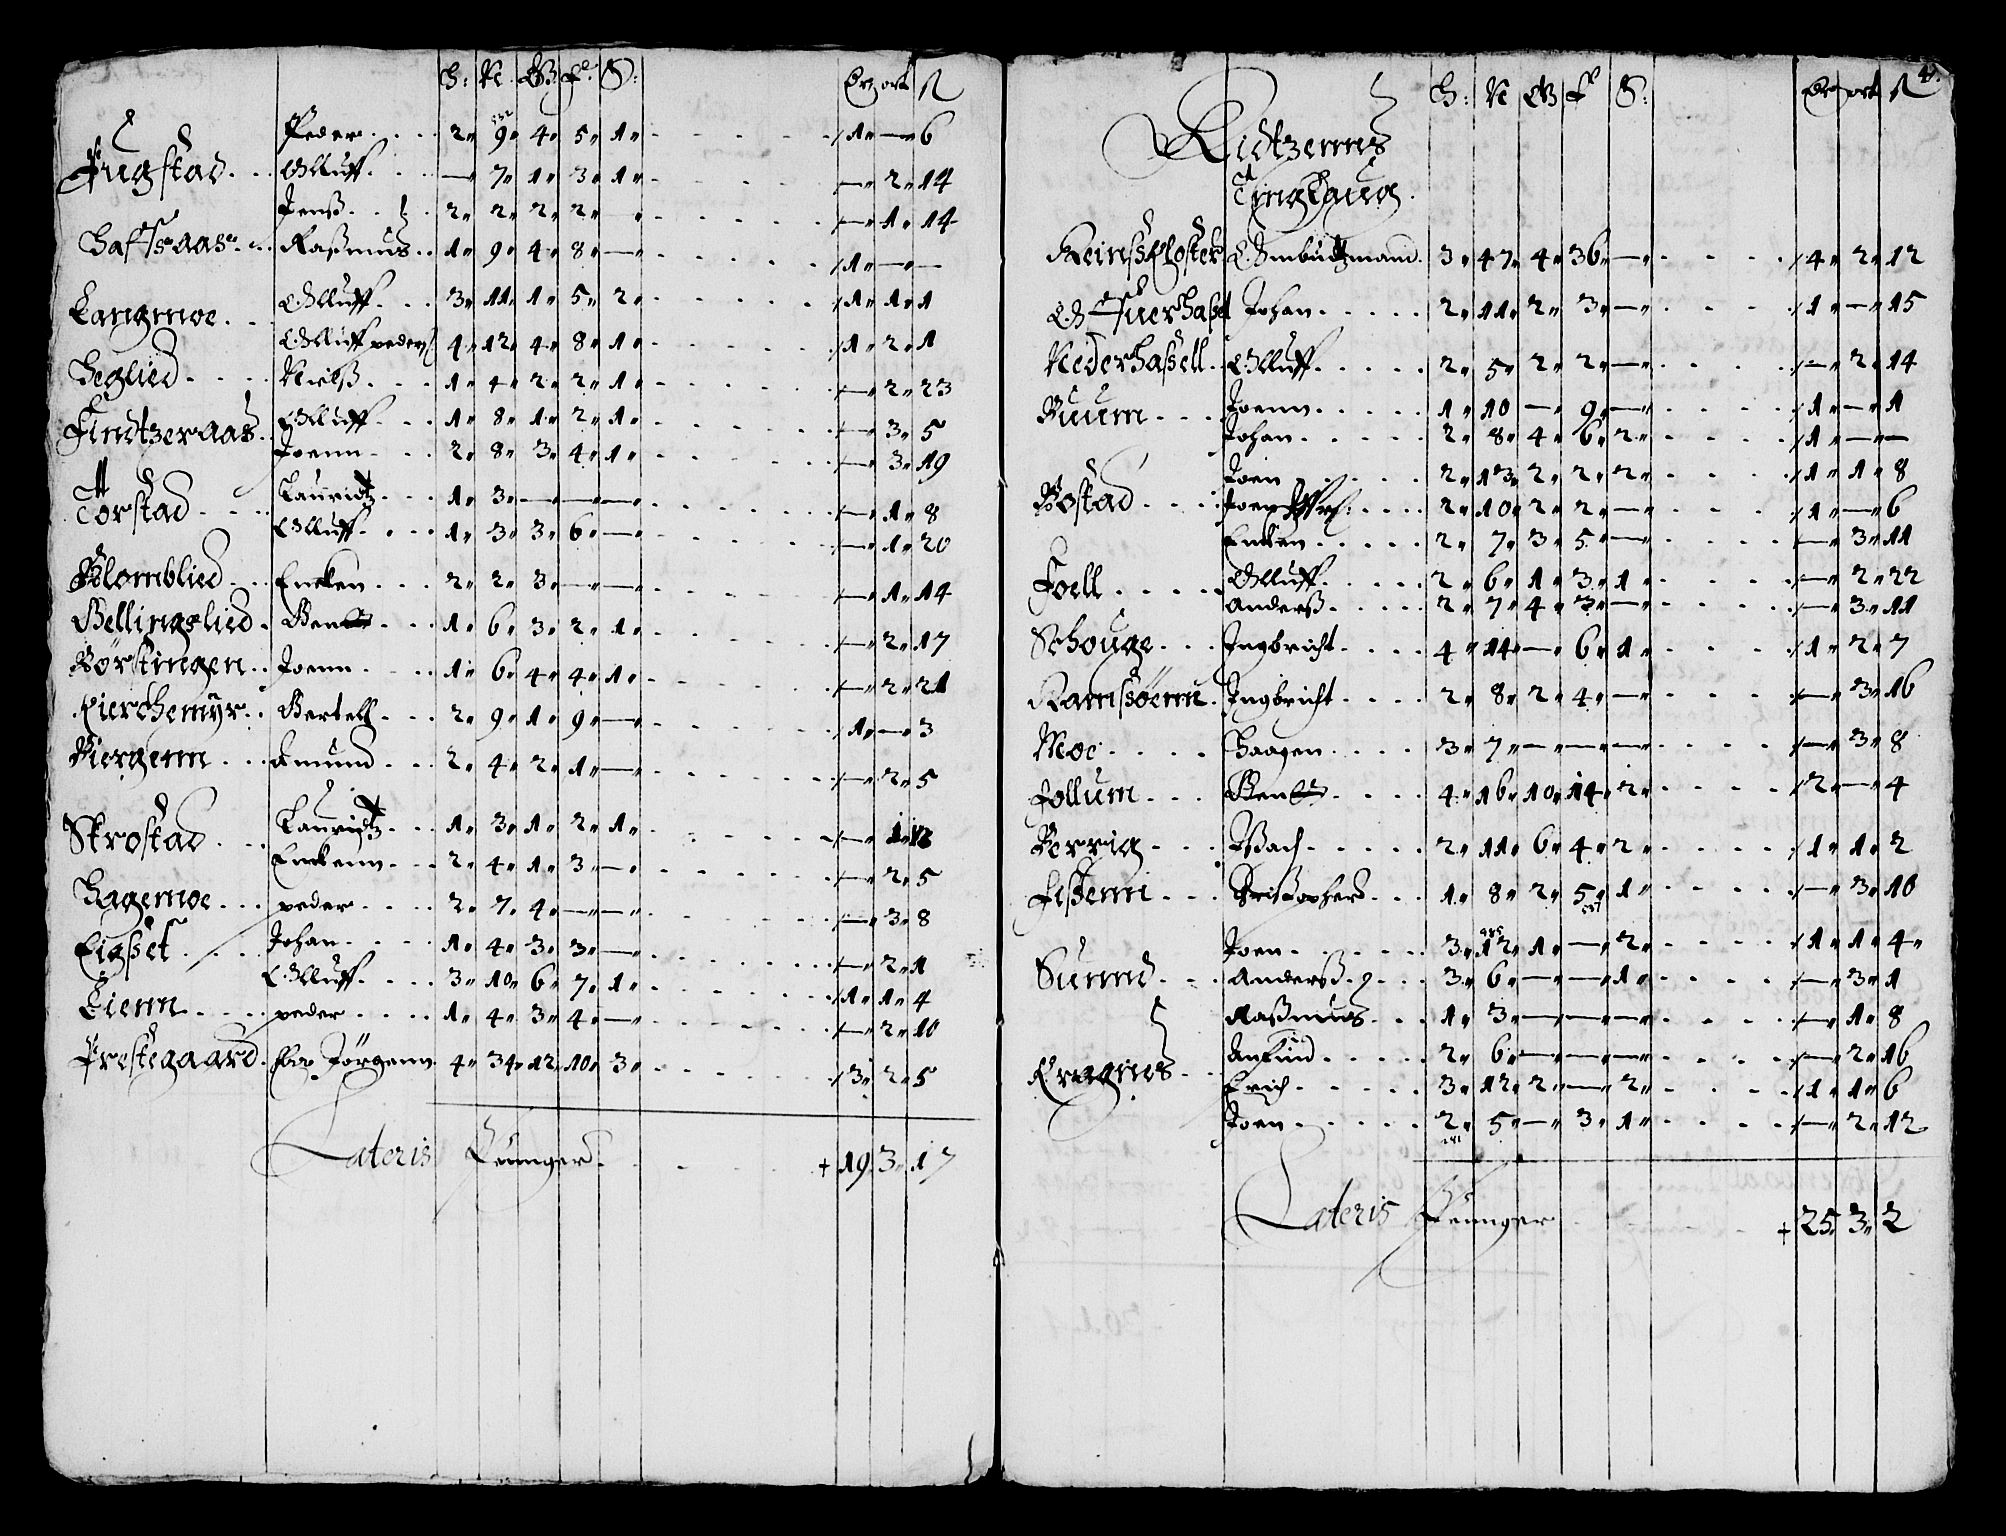 H: N. Ø: F: S: Ørz ort ß
Fugstad . . . Peder . . . 2„ 9„ 4„ 5„ 1„ 1„ — 6
Olluff . . . — 7„ 1„ 3„ 1„ — 2„ 14
Jenß . . 2„ 2„ 2„ 2„ — — 1„ 14
Rasmus . . 1„ 9„ 4„ 8„ — 1„ — —
Langmoe . . . Olluff . . 3„ 11„ 1„ 5„ 2„ 1„ 1„ 1
Olluff peders 4„ 12„ 4„ 8„ 1„ 1„ 2„ 1
Heglied . . . . Nielß . . . 1„ 4„ 2„ 2„ 1„ — 2„ 23
Findtzeraas . . Olluff . . . 1„ 8„ 1„ 2„ 1„ — 3„ 5
Joenn . . . 2„ 8„ 3„ 4„ 1„ — 3„ 19
Torstad . . . Lauridtz . . 1„ 3„ — — — — 1„ 8
Olluff . . . 1„ 3„ 3„ 6„ — — 1„ 20
Blomblied . . Encken . . . 2„ 2„ 3„ — — — 1„ 14
Bellingslied . . . 1„ 6„ 3„ 2„ 1„ — 2„ 17
Börstingen . . Joenn . . . . 1„ 6„ 4„ 4„ 1„ — 2„ 21
Kierchemÿr . . Bertell . . . 2„ 9„ 1„ 9„ — 1„ — 3
Biergenn . . . Amund . . . 2„ 4„ 2„ 1„ — — 2„ 5
Skrostad . . . Lauridtz . . . 1„ 3„ 1„ 2„ 1„ — 1„
Enckenn . . . 2„ 4„ 1„ 3„ — — 2„ 5
Hagemoe . . . peder . . . . 2„ 7„ 4„ — — — 3„ 8
Eigset . . . Johan . . . . 1„ 4„ 3„ 3„ — — 2„ 1
Lienn . . . . Olluff . . . . 3„ 10„ 6„ 7„ 1„ 1„ 1„ 4
peder . . . . 1„ 4„ 3„ 4„ — — 2„ 10
Prestegaard . Her Jörgenn 4„ 34„ 12„ 10„ 3„ 3„ 2„ 5
Lateris Penge . . . + 19„ 3„ 17
4.
H: N Ø F S: Ørz ort ß
Ridtzenns
Tinglaug.
Reinßkloster Ombudtzmand . 3„ 47„ 4„ 36„ — 4„ 2„ 12
Johan . . . . . 2„ 11„ 2„ 3„ — 1„ — 15
Nederhaßell . . Olluff . . . . . 2„ 5„ 2„ 2„ — — 2„ 14
Ruum . . . Joenn . . . . . 1„ 10 — 9„ — 1„ — 1
Johan . . . . . 2„ 8„ 4„ 6„ 2„ 1„ — —
Rostad . . . . Joen . . . . 2„ 13„ 2„ 2„ 2„ 1„ 1„ 8
Joen . . . . 2„ 10„ 2„ 2„ — 1„ — 6
Encken . . . . . 2„ 7„ 3„ 5„ — — 3„ 11
Foell . . . . . Olluff . . . . . 2„ 6„ 1„ 3„ 1„ — 2„ 22
Anderß . . . . 2„ 7„ 4„ 3„ — — 3„ 11
Schouge . . . Ingbricht . . . . 4„ 14„ — 6„ 1„ 1„ 2„ 7
Ramsßöenn . Ingbricht . . . . 2„ 8„ 2„ 4„ — — 3„ 16
Moe . . . . Haagen . . . . 3„ 7„ — — — — 3„ 8
Jollum . . . . . . . 4„ 16„ 10„ 14„ 2„ 2„ — 4
Berrig . . . . . . . . 2„ 11„ 6„ 4„ 2„ 1„ 1„ 2
Feßenn . . . Kristopher . . . 1„ 8„ 2„ 5„ 1„ — 3„ 10
Joen . . . . . . 3„ 12„ 1„ — 2„ 1„ 1„ 4„
Sunnd . . . Anderß . . . . 3„ 6„ — — 1„ — 3„ 1
Raßmus . . . 1„ 3„ — — — — 1„ 8
Kragnes . . . . . . 2„ 6„ — — — — 2„ 16
Erich . . . . . 3„ 12„ 2„ — 2„ 1„ 1„ 6
Joen . . . . . 2„ 5„ — 3„ 1„ — 2„ 12
Lateris Penger . . . + 25„ 3„ 2